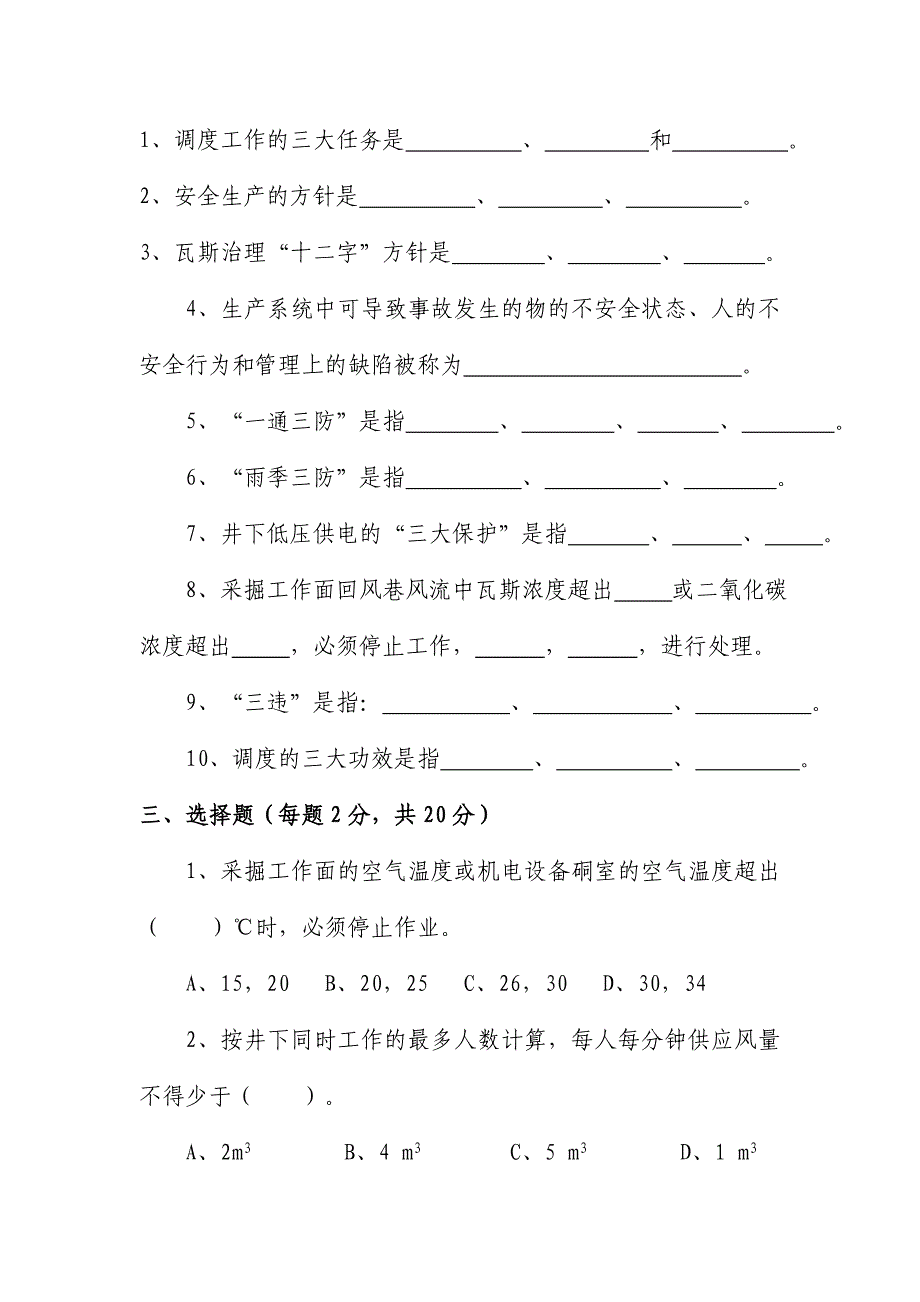 1、调度工作的三大任务是__________、_________和__________。
2、安全生产的方针是__________、_________、__________。
3、瓦斯治理“十二字”方针是________、________、_______。
4、生产系统中可导致事故发生的物的不安全状态、人的不
安全行为和管理上的缺陷被称为________________________。
5、“一通三防”是指________、________、_______、________。
6、“雨季三防”是指__________、__________、________。
7、井下低压供电的“三大保护”是指_______、______、_____。
8、采掘工作面回风巷风流中瓦斯浓度超出_____或二氧化碳
浓度超出_____，必须停止工作，______，______，进行处理。
9、“三违”是指：___________、____________、__________。
10、调度的三大功效是指________、__________、_________。
三、选择题（每题2分，共20分）
1、采掘工作面的空气温度或机电设备硐室的空气温度超出
（　　）℃时，必须停止作业。
A、15，20 B、20，25 C、26，30 D、30，34
2、按井下同时工作的最多人数计算，每人每分钟供应风量
不得少于（　　）。
A、2m³ B、4 m³ C、5 m³ D、1 m³